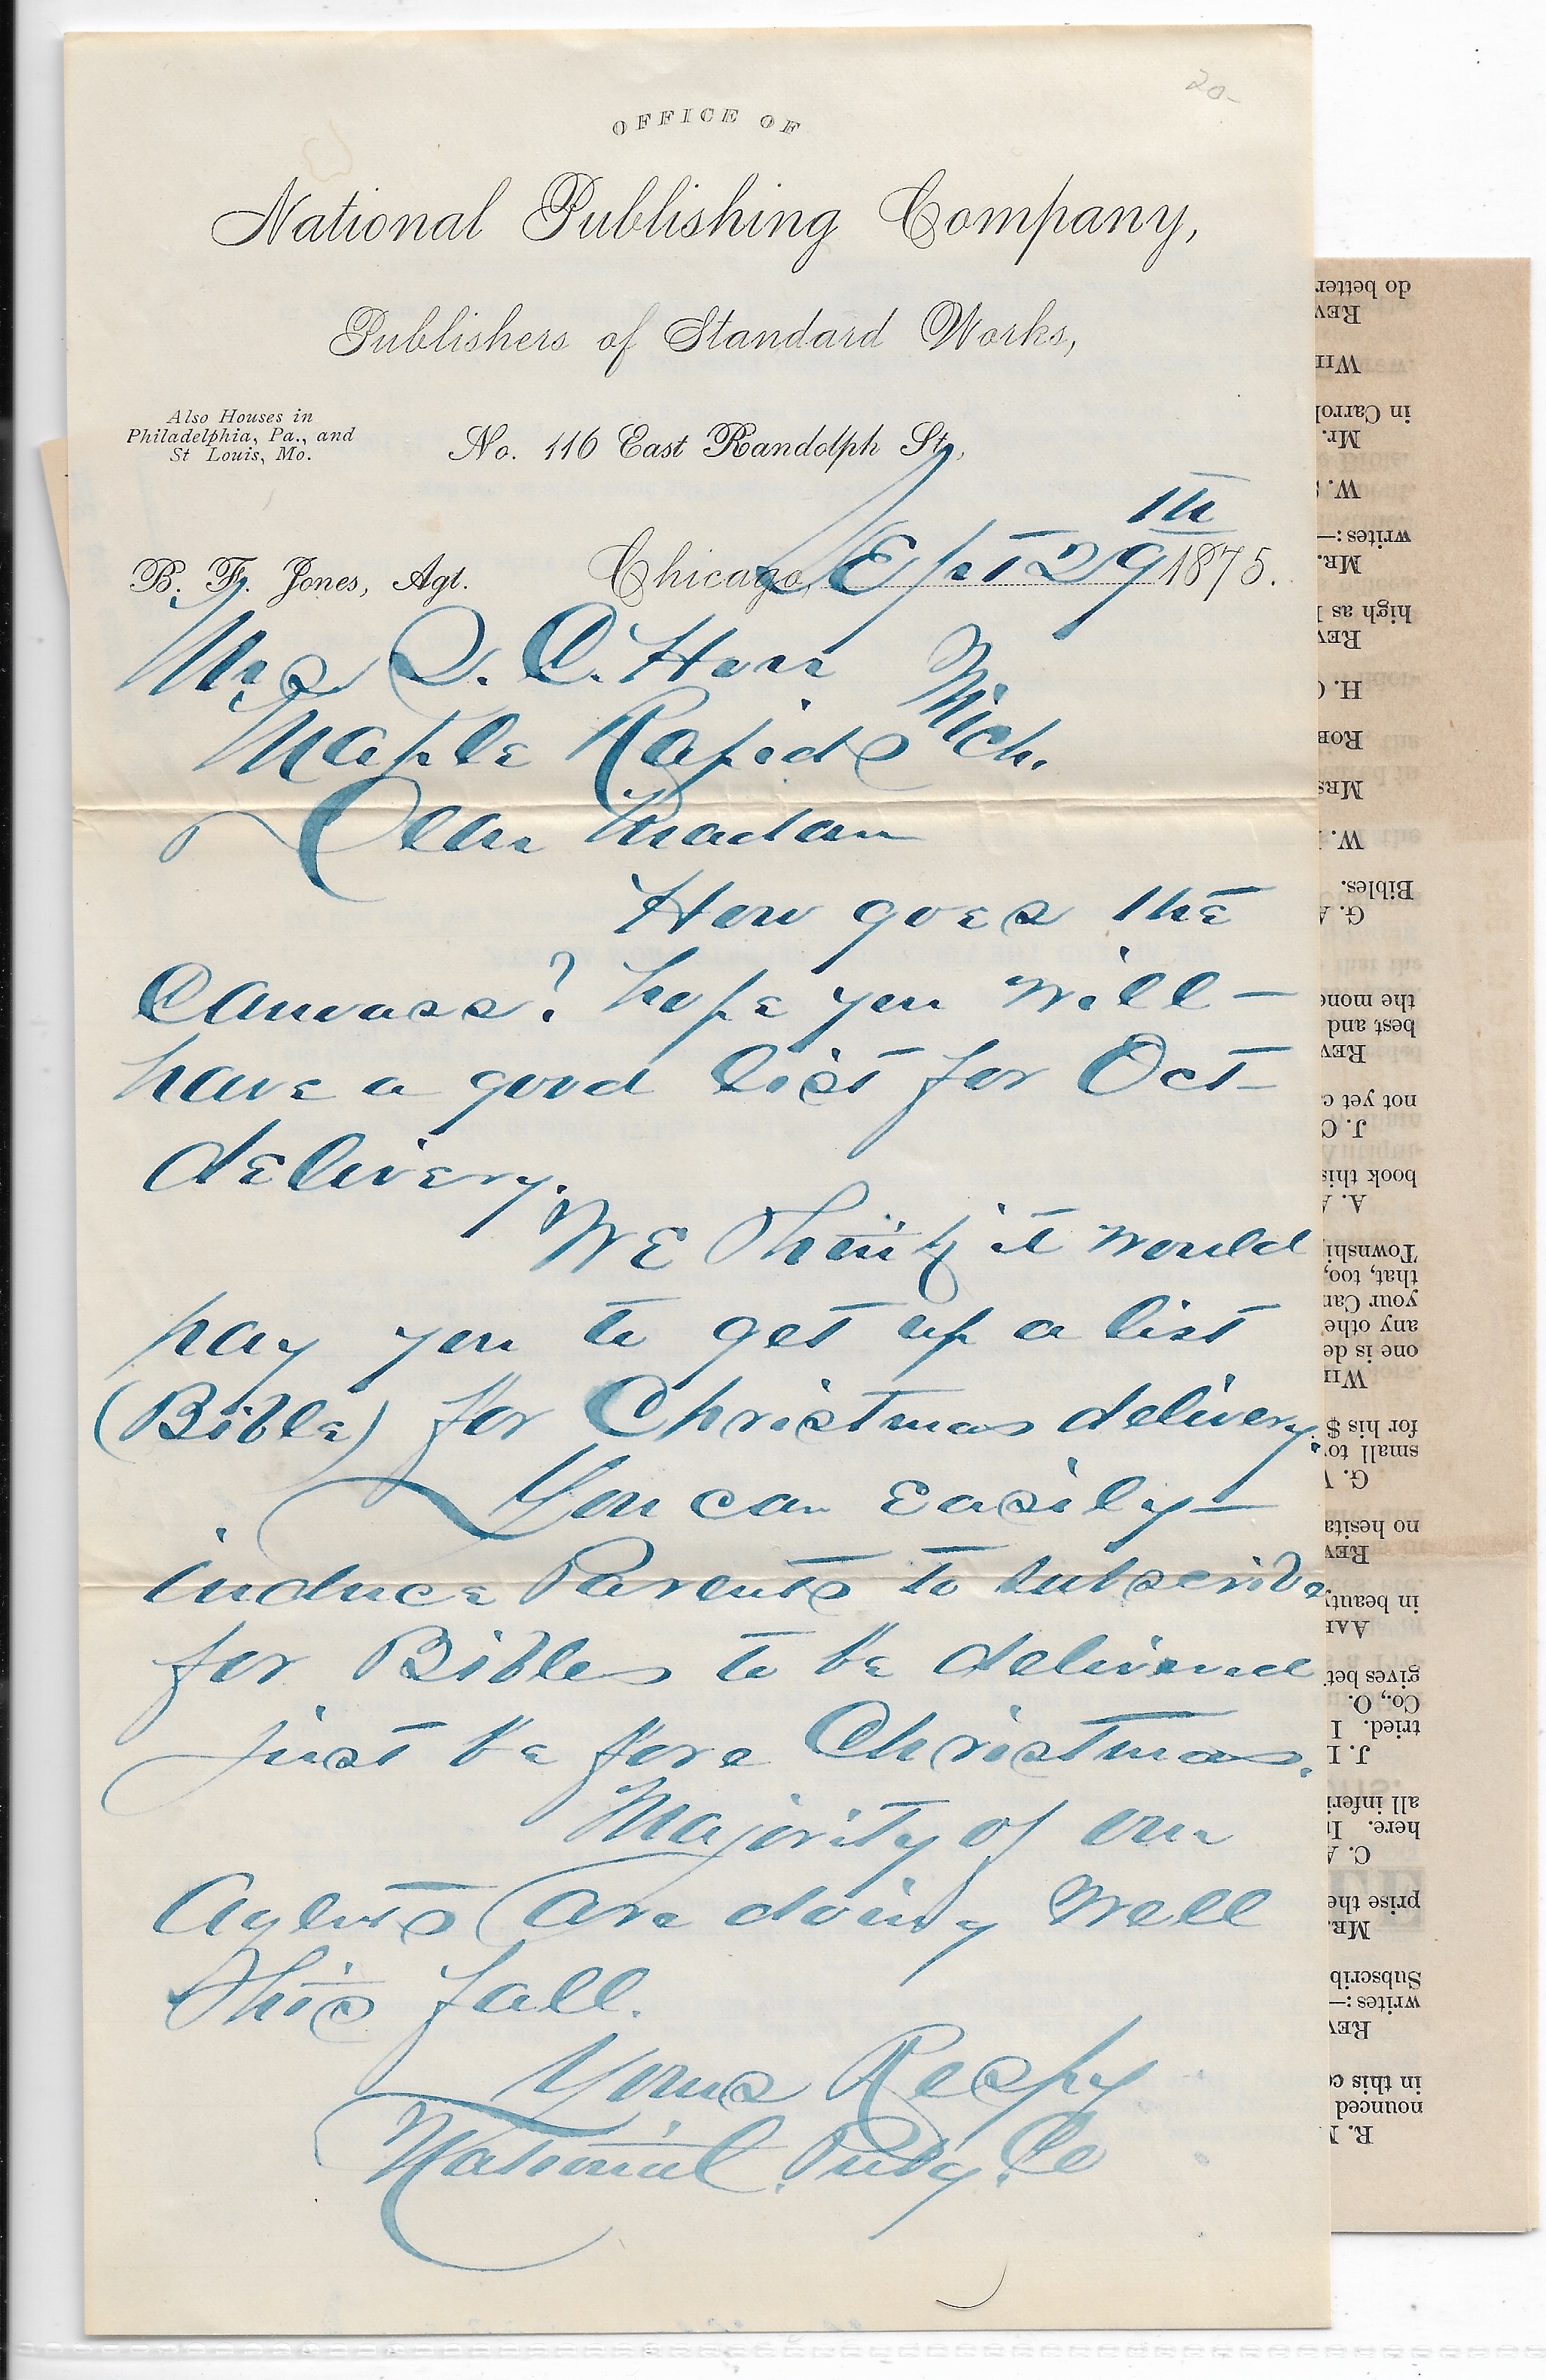 20-
OFFICE OF
National Publishing Company,
Publishers of Standard Works,
Also Houses in
Philadelphia, Pa., and
St Louis, Mo.
No. 116 East Randolph St.,
B. F. Jones, Agt.
Chicago, Sept 29th 1875.
Mrs D. C. Horr
Maple Rapids Mich.
Dear Madam
How goes the
Canvass? hope you will-
have a good list for Oct-
delivery.
We Think it would
pay you to get up a list
(Bible) for Christmas delivery.
You can easily-
induce Parents to subscribe
for Bibles to be delivered
just be fore Christmas.
Majority of our
Agents are doing well
This fall.
Yours Respy
National Pubg. Co
do better
REV
WII
in Carrol
Mr.
W.
writes:—
MR.
high as
REV
H. C
ROB
MRS
W.
Bibles.
G. A
the mone
best and
REV
not yet c
J. C
book this
A. A
Townshi
that, too,
your Can
any othe
one is de
WII
for his $
small to
G.
no hesita
REV
in beauty
AAR
gives bet
Co., O.
tried. I
J. I
all inferi
here. I
C. A
prise the
MR.
Subscrib
writes:—
REV
in this c
nounced
R.